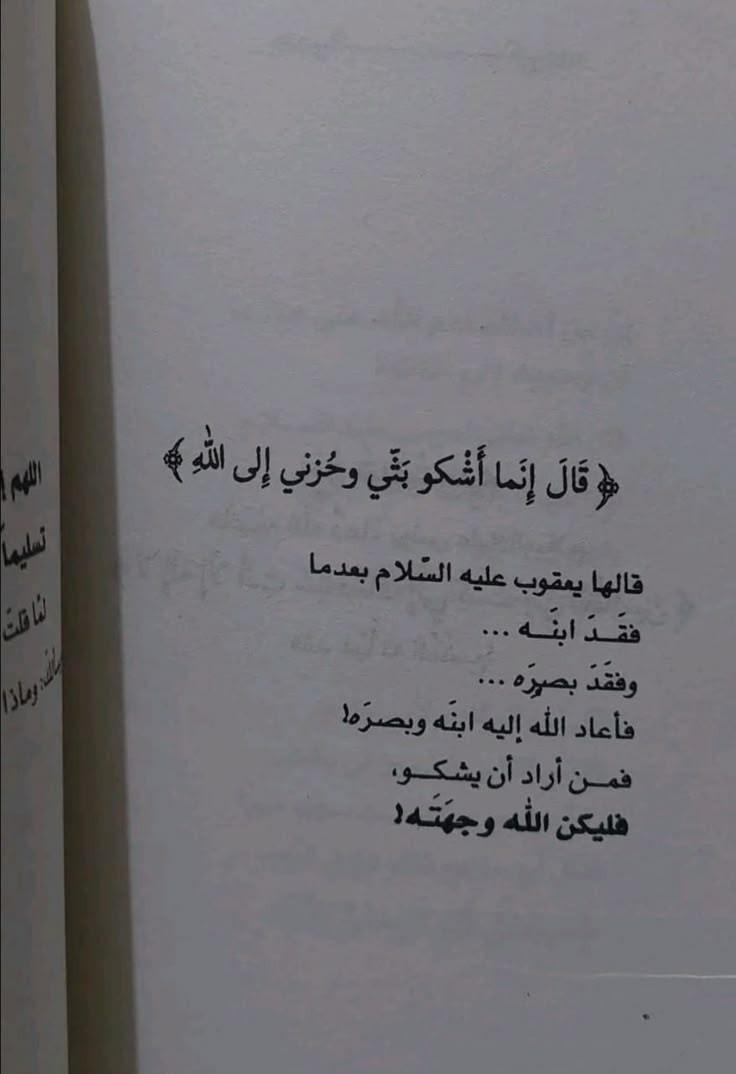 ﴿ قَالَ إِنَما أَشْكو بَثّي وحُزني إِلى اللهِ ﴾
قالها يعقوب عليه السّلام بعدما
فقَدَ ابنَه ...
وفقَدَ بصرَه ...
فأعاد الله إليه ابنَه وبصرَه!
فمن أراد أن يشكو،
فليكن الله وجهَتَه!
اللهم
تسليماً
لمّا قلتَ
وماذا